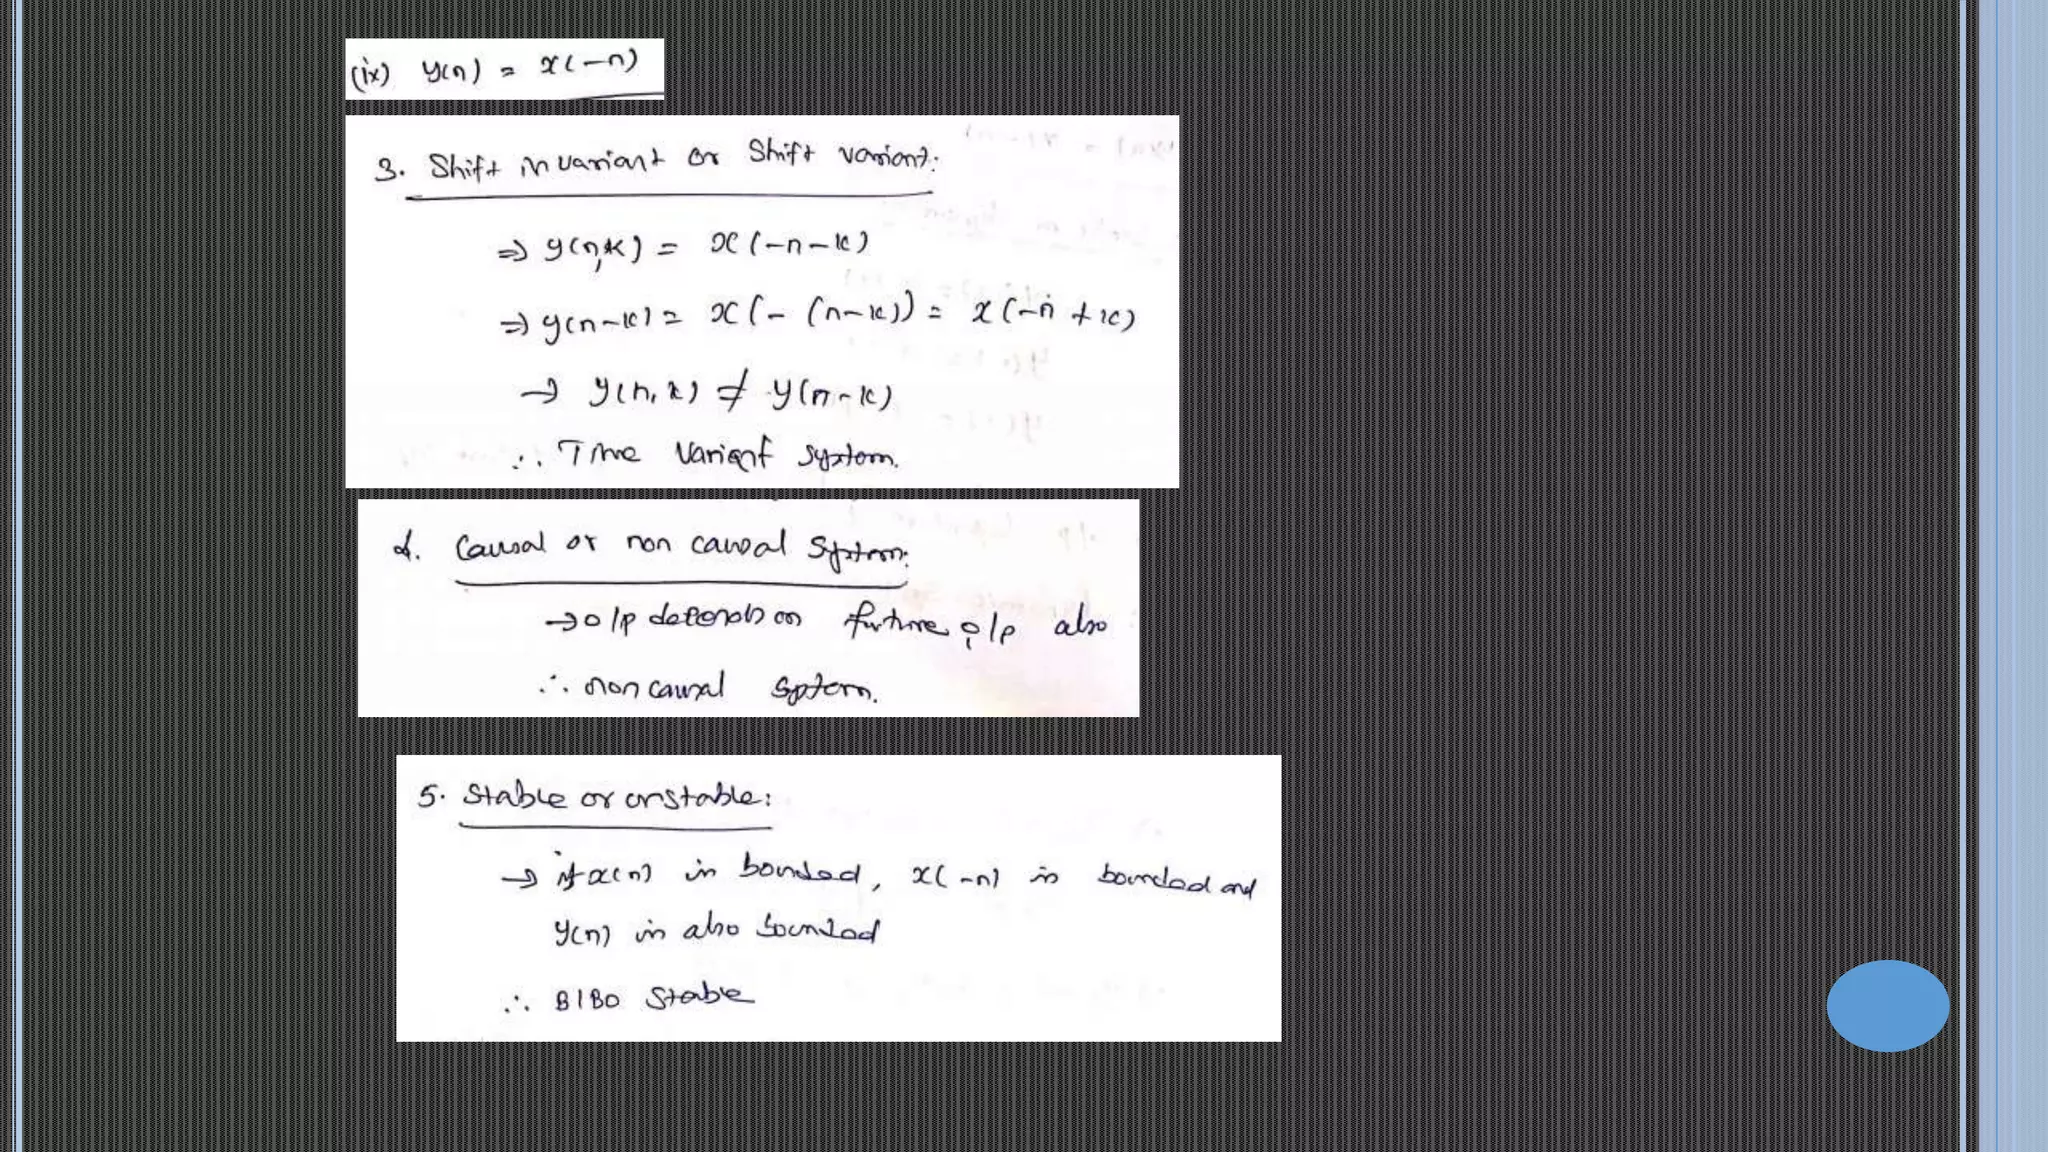 (ix) y(n) = x(-n)
3. Shift invariant or Shift variant:
⇒ y(n,k) = x(-n-k)
⇒ y(n-k) = x(-(n-k)) = x(-n+k)
→ y(n,k) ≠ y(n-k)
∴ Time Variant System.
4. Causal or non causal System:
→ o/p depends on future i/p also
∴ non causal System.
5. Stable or unstable:
→ if x(n) is bounded, x(-n) is bounded and
y(n) is also bounded
∴ BIBO Stable